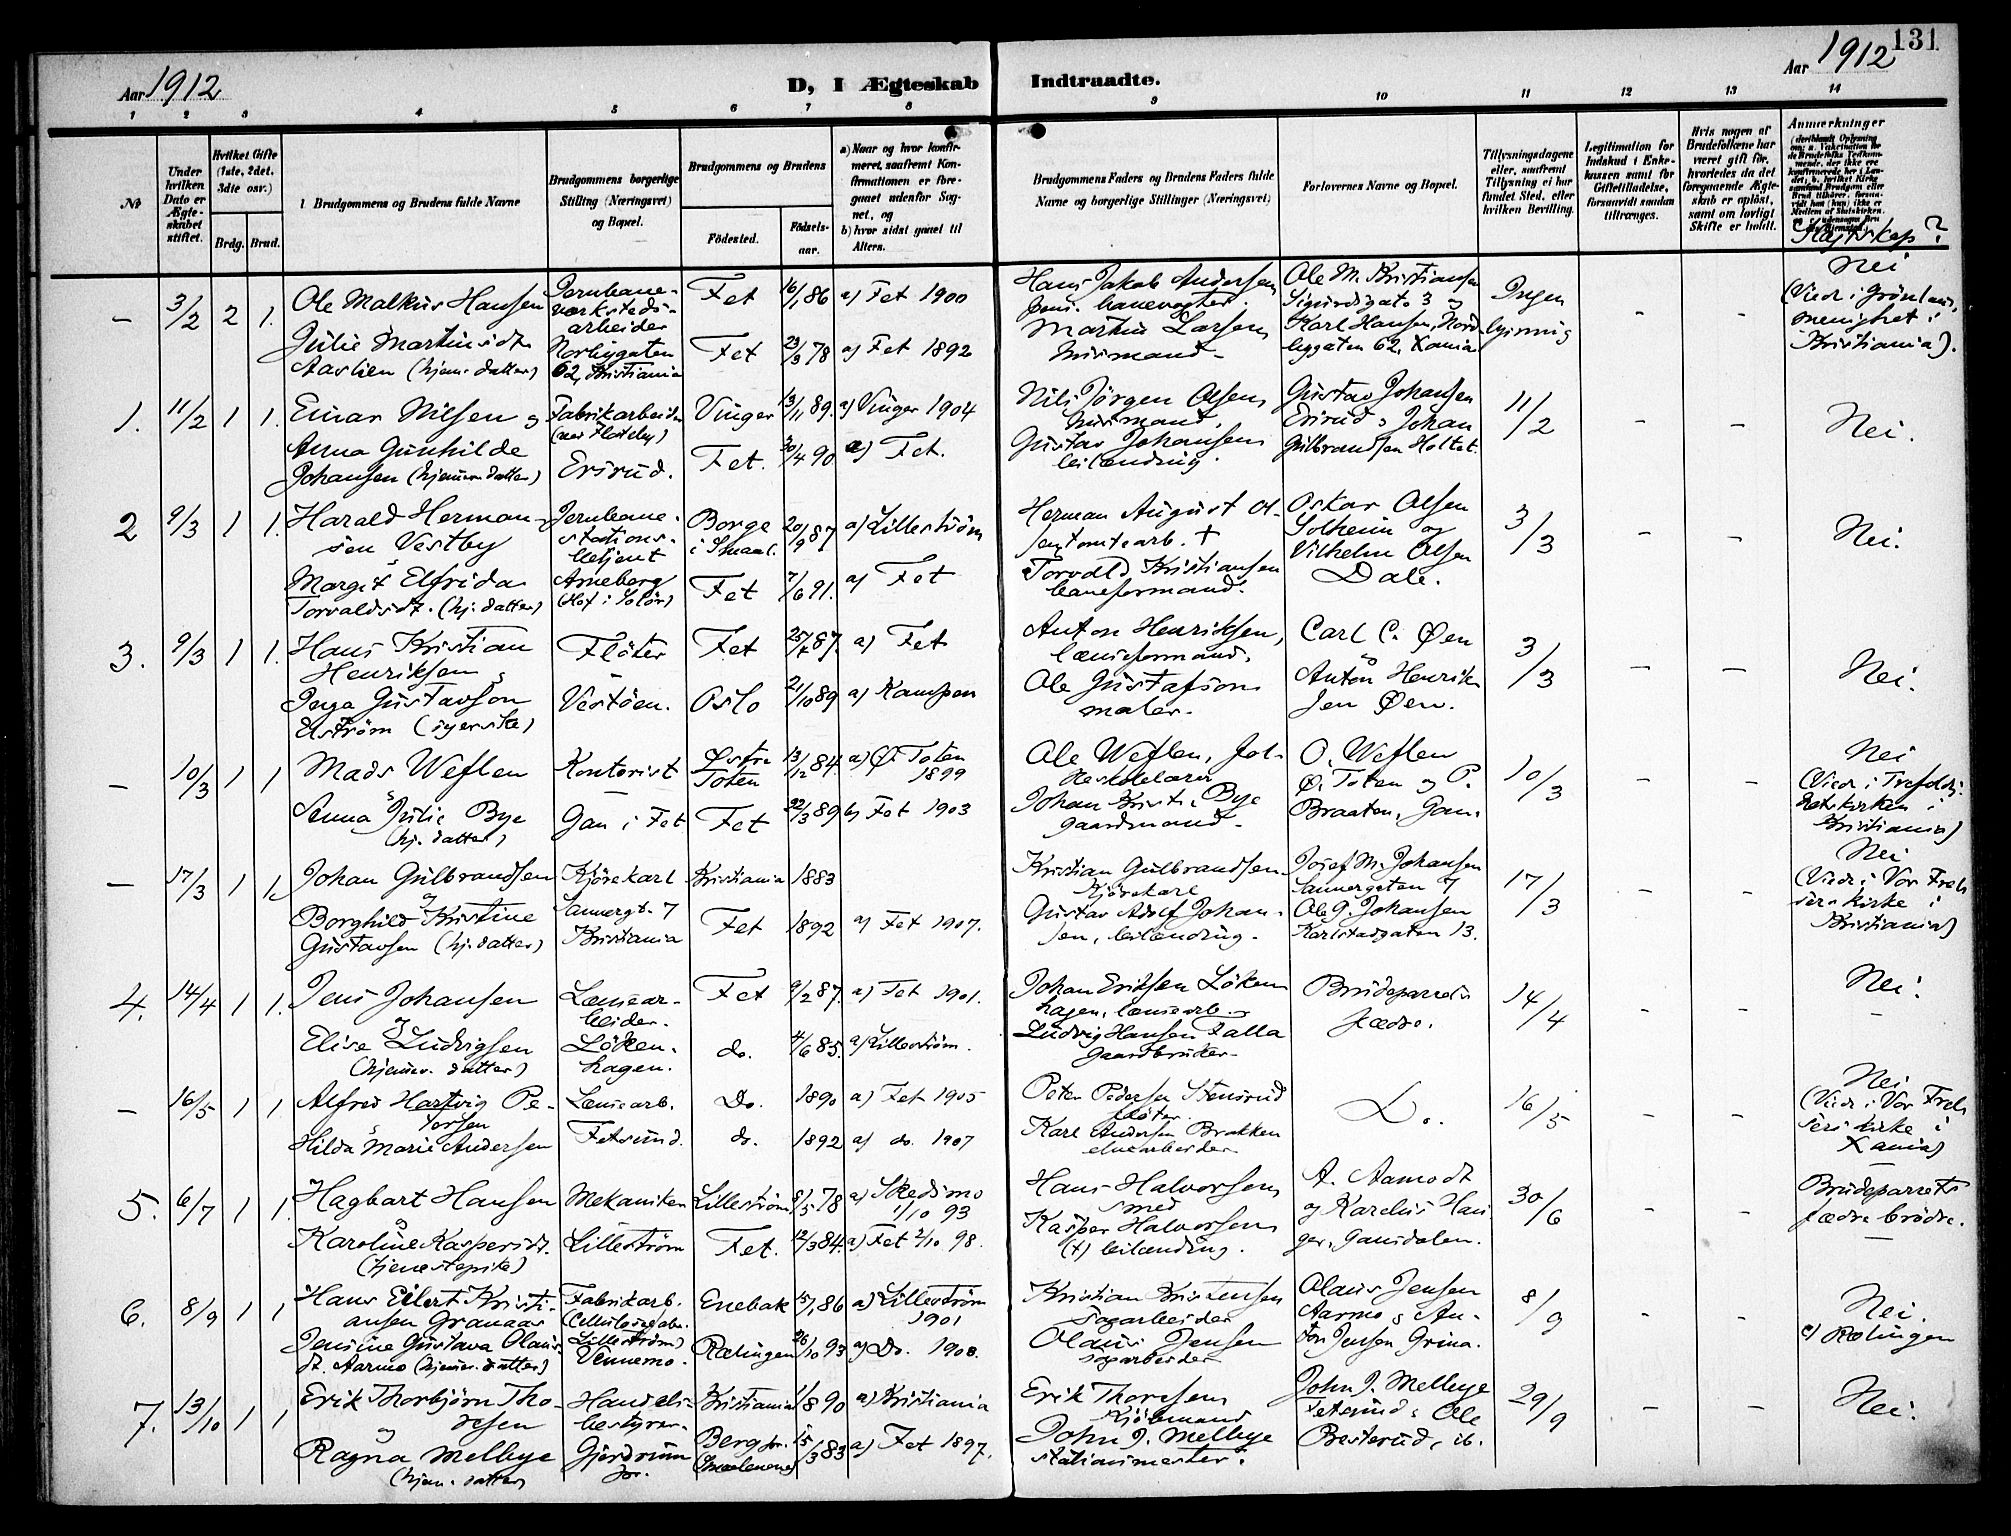 131
Aar 1912
D, I Ægteskab Indtraadte.
Aar 1912
1 2 3 4 5 6 7 8 9 10 11 12 13 14
No
Under hvilken Dato er Ægteskabet stiftet.
Hvilket Gifte (1ste, 2det, 3dte osv.)
Brdg. Brud.
Brudgommens og Brudens fulde Navne
Brudgommens borgerlige Stilling (Næringsvei) og Bopæl.
Brudgommens og Brudens
Fødested. Fødsels-aar.
a) Naar og hvor konfirmeret, saafremt Konfirmationen er foregaaet udenfor Sognet, og
b) hvor sidst gaaet til Alters.
Brudgommens Faders og Brudens Faders fulde Navne og borgerlige Stillinger (Næringsvei)
Forlovernes Navne og Bopæl.
Tillysningsdagene eller, saafremt Tillysning ei har fundet Sted, efter hvilken Bevilling.
Legitimation for Indskud i Enkekassen samt for Giftetilladelse, forsaavidt saadan tiltrænges.
Hvis nogen af Brudefolkene har været gift før, hvorledes da det foregaaende Ægteskab er opløst, samt om lovligt Skifte er holdt.
Anmærkninger
Slægtskap?
— 3/2 2 1.
Ole Malkus Hansen
Julie Martinsdt.
Aaslien (hjem. datter)
Jernbane-
verksteds-
arbeider
Norbygaten
62, Kristiania
Fet 16/1 86 a) Fet 1900
Fet 23/9 78 a) Fet 1892
Hans Jakob Andersen
pens. banevogter.
Martin Larsen
husmand
Ole M. Kristiansen
Sigurdsgate 3 og
Karl Hansen, Nord
byggaten 62, Xania
Ingen
lysning
- -
Nei
(Viedr i Grønlands
menighet i
Kristiania).
1. 11/2 1 1.
Einar Nilsen og
Anna Gunhilde
Johansen (hjemmev. datter)
Fabrikarbeider
(ved Floteby)
Ersrud.
Vinger 13/11 89. a) Vinger 1904
Fet. 30/4 90 a) Fet.
Nils Jørgen Olsen
husmand.
Gustav Johansen
leilænding.
Gustav Johansen
Ersrud, Johan
Gulbrandsen Holtet.
11/2
- -
Nei.
2 9/3 1 1.
Harald Herman-
sen Vestby
Margit Elfrida
Torvaldsdt. (hj. datter)
Jernbane-
stations-
betjent
Arneberg
(Hof i Solør)
Borge
i Smaal.
20/9 87 a) Lillestrøm
Fet 7/6 91. a) Fet
Herman August Ol-
sen tomtearb. +
Torvald Kristiansen
baneformand.
Oskar Olsen
Solheim og
Vilhelm Olsen
Dale.
3/3
- -
Nei.
3. 9/3 1 1.
Hans Kristian
Henriksen
Inga Gustavson
Elström (syerske)
Fløter
Vestøen.
Fet 25/7 87. a) Fet
Oslo 21/10 89 a) Kampen
Anton Henriksen,
lænseformand.
Ole Gustafson
maler.
Carl C. Øen
Anton Henrik-
sen Øen.
3/3
- -
Nei.
— 10/3 1 1
Mads Weflen
Anna Julie Bye
(hj. datter)
Kontorist
Gan i Fet
Østre
Toten
13/12 84. a) Ø. Toten
1899
Fet 22/3 89 b) Fet 1903
Ole Weflen, fol-
keskolelærer
Johan Kristi. Bye
gaardmand.
O. Weflen
Ø. Toten og P.
Braaten, Gan.
10/3
- -
Nei
(Viedr i Trefoldig-
hetskirken i
Kristiania)
— 17/3 1 1.
Johan Gulbrandsen
Borghild Kristine
Gustavsen (hj. datter)
Kjørekarl
Sannergt. 7
Kristiania
Kristiania 1883
Fet 1892 a) Fet 1907.
Kristian Gulbrandsen
kjørekarl
Gustav Adolf Johan-
sen, leilænding.
Josef M. Johansen
Sannergaten 7
Ole G. Johansen
Karlstadgaten 13.
17/3
- -
Nei
(Viedr i Vor Frel-
sers kirke i
Kristiania)
4. 14/4 1 1.
Jens Johansen
Elise Ludvigsen
(hjemmev. datter)
Lensear-
beider.
Løken-
hagen.
Fet 9/2 87. a) Fet 1901.
do. 4/6 85. a) Lillestrøm.
Johan Eriksen Løken-
hagen, lensearb.
Ludvig Hansen Falla
gaardbruker
Brudeparrets
fædre.
14/4
- -
Nei.
— 16/5 1 1
Alfred Hartvig Pe-
tersen
Hilda Marie Andersen
Lensearb.
Fetsund.
Do. 1890 a) Fet 1905
do. 1892 a) do. 1907
Peter Pedersen Stensrud
fløter.
Karl Andersen Brakken
elvearbeider
Do.
16/5
- -
Nei
(Viedr i Vor Frel-
sers kirke i
Xania)
5. 6/7 1 1.
Hagbart Hansen
Karoline Kaspersdt.
(tjenestepike)
Mekaniker
Lillestrøm
Lillestrøm 8/5 78 a) Skedsmo
1/10 93
Fet. 12/3 84. a) Fet 2/10 98.
Hans Halvorsen
smed
Kasper Halvorsen
(+) leilænding.
A. Aamodt
og Karelius Hau-
ger, Gansdalen.
30/6
- -
Brudeparrets
fædre brødre.
6. 8/9 1 1
Hans Eilert Kristi-
ansen Granaas
Jensine Gustava Olaus-
dt. Aarmo (hjemmev. datter)
Fabrikarb.
(Cellulosefabr.
Lillestrøm)
Vennemo.
Enebak 15/1 86 a) Lillestrøm
1901
Rælingen 26/10 93 a) Do. 1908.
Kristian Kristensen
sagarbeider
Olaus Jensen
sagarbeider
Olaus Jensen
Aarmo, An-
ton Jensen Grina.
8/9
- -
Nei.
c) Rælingen
7. 13/10 1 1
Erik Thorbjørn Tho-
resen
Ragna Melbye
(hjem. datter)
Handels-
bestyrer
Gjerdrum
Kristiania 1/8 90 a) Kristiania
Berg
(Smaalenene)
15/3 83 a) Fet 1897.
Erik Thoresen
Kjøbmand
John J. Melbye
stationsmester.
John J. Melbye
Fetsund, Ole
Besterud, ib.
29/9
- -
Nei.